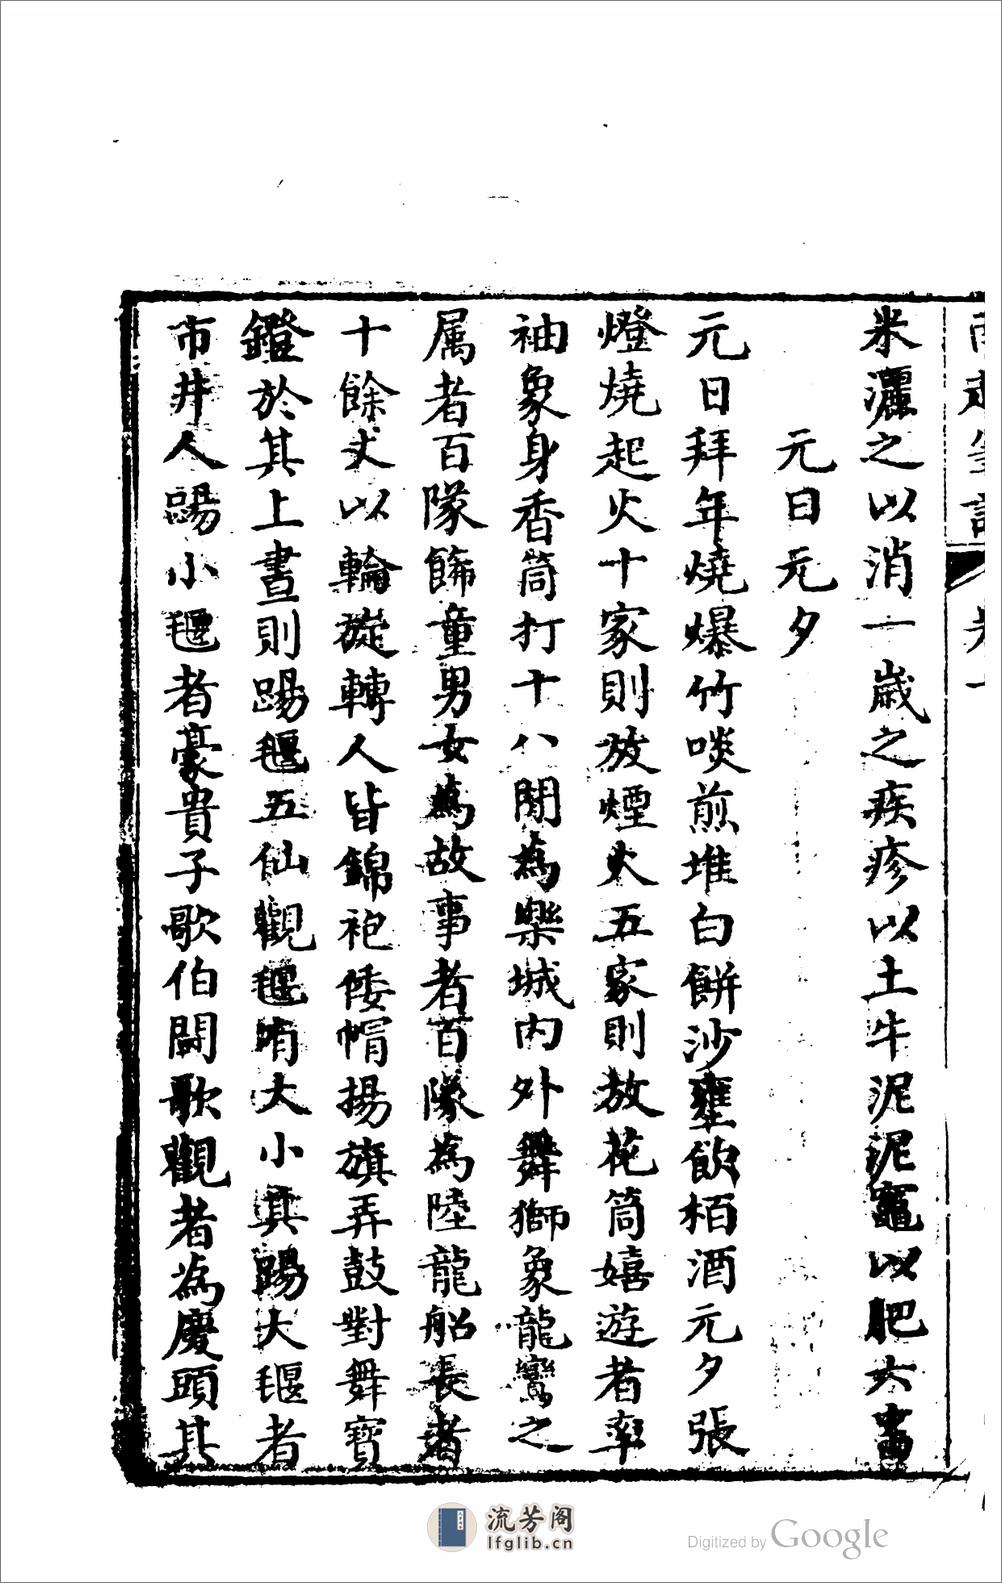 米灑之以消一歲之疾疹以土牛泥泥竈以肥六畜
元日元夕
元日拜年燒爆竹啖煎堆白餅沙壅飲柏酒元夕張
燈燒起火十家則放煙火五家則放花筒嬉遊者率
袖象身香筒打十八閒為樂城內外舞獅象龍鸞之
属者百隊飾童男女為故事者百隊為陸龍船長者
十餘丈以輪旋轉人皆錦袍倭帽揚旗弄鼓對舞寶
鐙於其上晝則踢毽五仙觀毽有大小其踢大毽者
市井人踢小毽者豪貴子歌伯鬭歌觀者為慶頭其
流芳阁
lfglib.cn
Digitized by Google